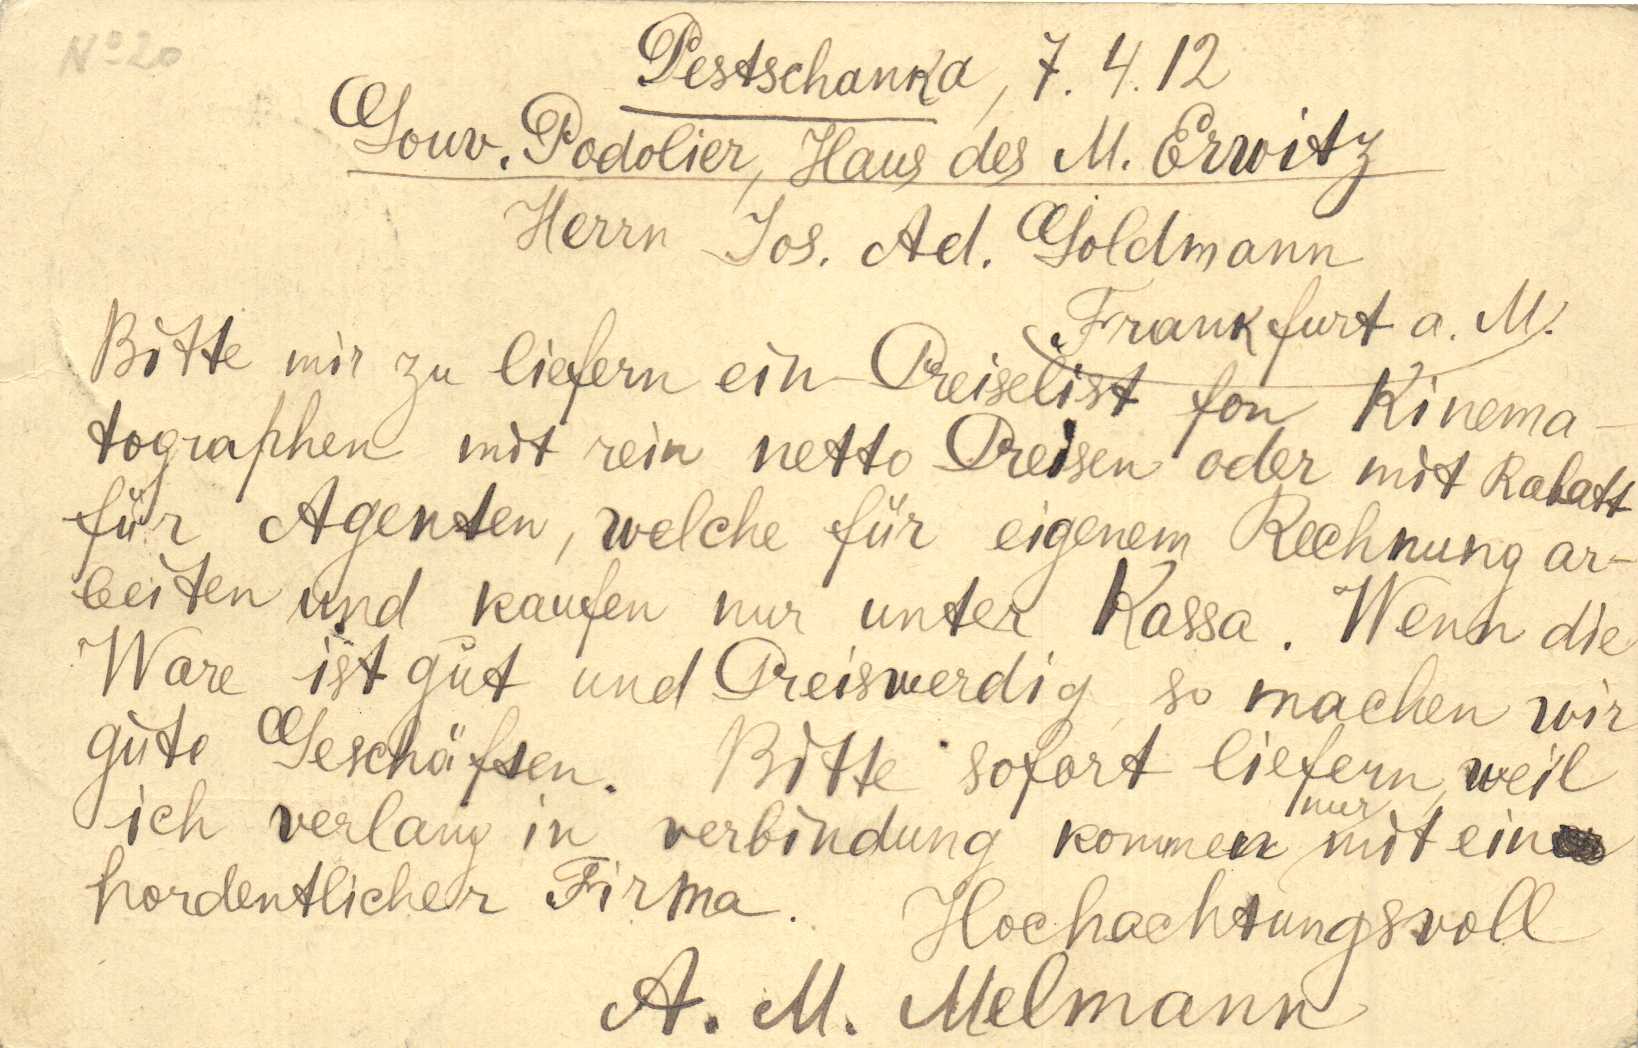 No 20
Pestschanka, 7. 4. 12
Gouv. Podolier, Haus des M. Erwitz
Herrn Jos. Ad. Goldmann
Frankfurt a. M.
Bitte mir zu liefern ein Preiselist fon Kinema-
tographen mit rein netto Preisen oder mit Rabatt
für Agenten, welche für eigenem Rechnung ar-
beiten und kaufen nur unter Kassa. Wenn die
Ware ist gut und Preiswerdig, so machen wir
gute Geschäften. Bitte sofort liefern, weil
ich verlang in verbindung kommen nur mit ein
hordentlicher Firma. Hochachtungsvoll
A. M. Melmann